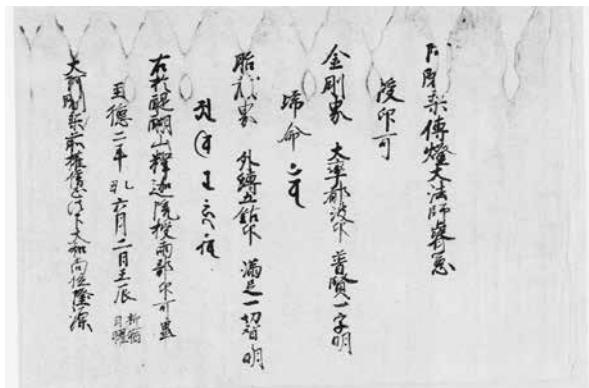 阿闍梨傳燈大法師
授印可
金剛界 大率都波印 普賢一字明
帰命
胎蔵界 外縛五鈷印 満足一切智明
右於醍醐山釋迦院授両部印可畢
至徳二年乙丑六月二日壬辰 宿
日曜
大阿闍梨前権僧正法印大和尚位隆源